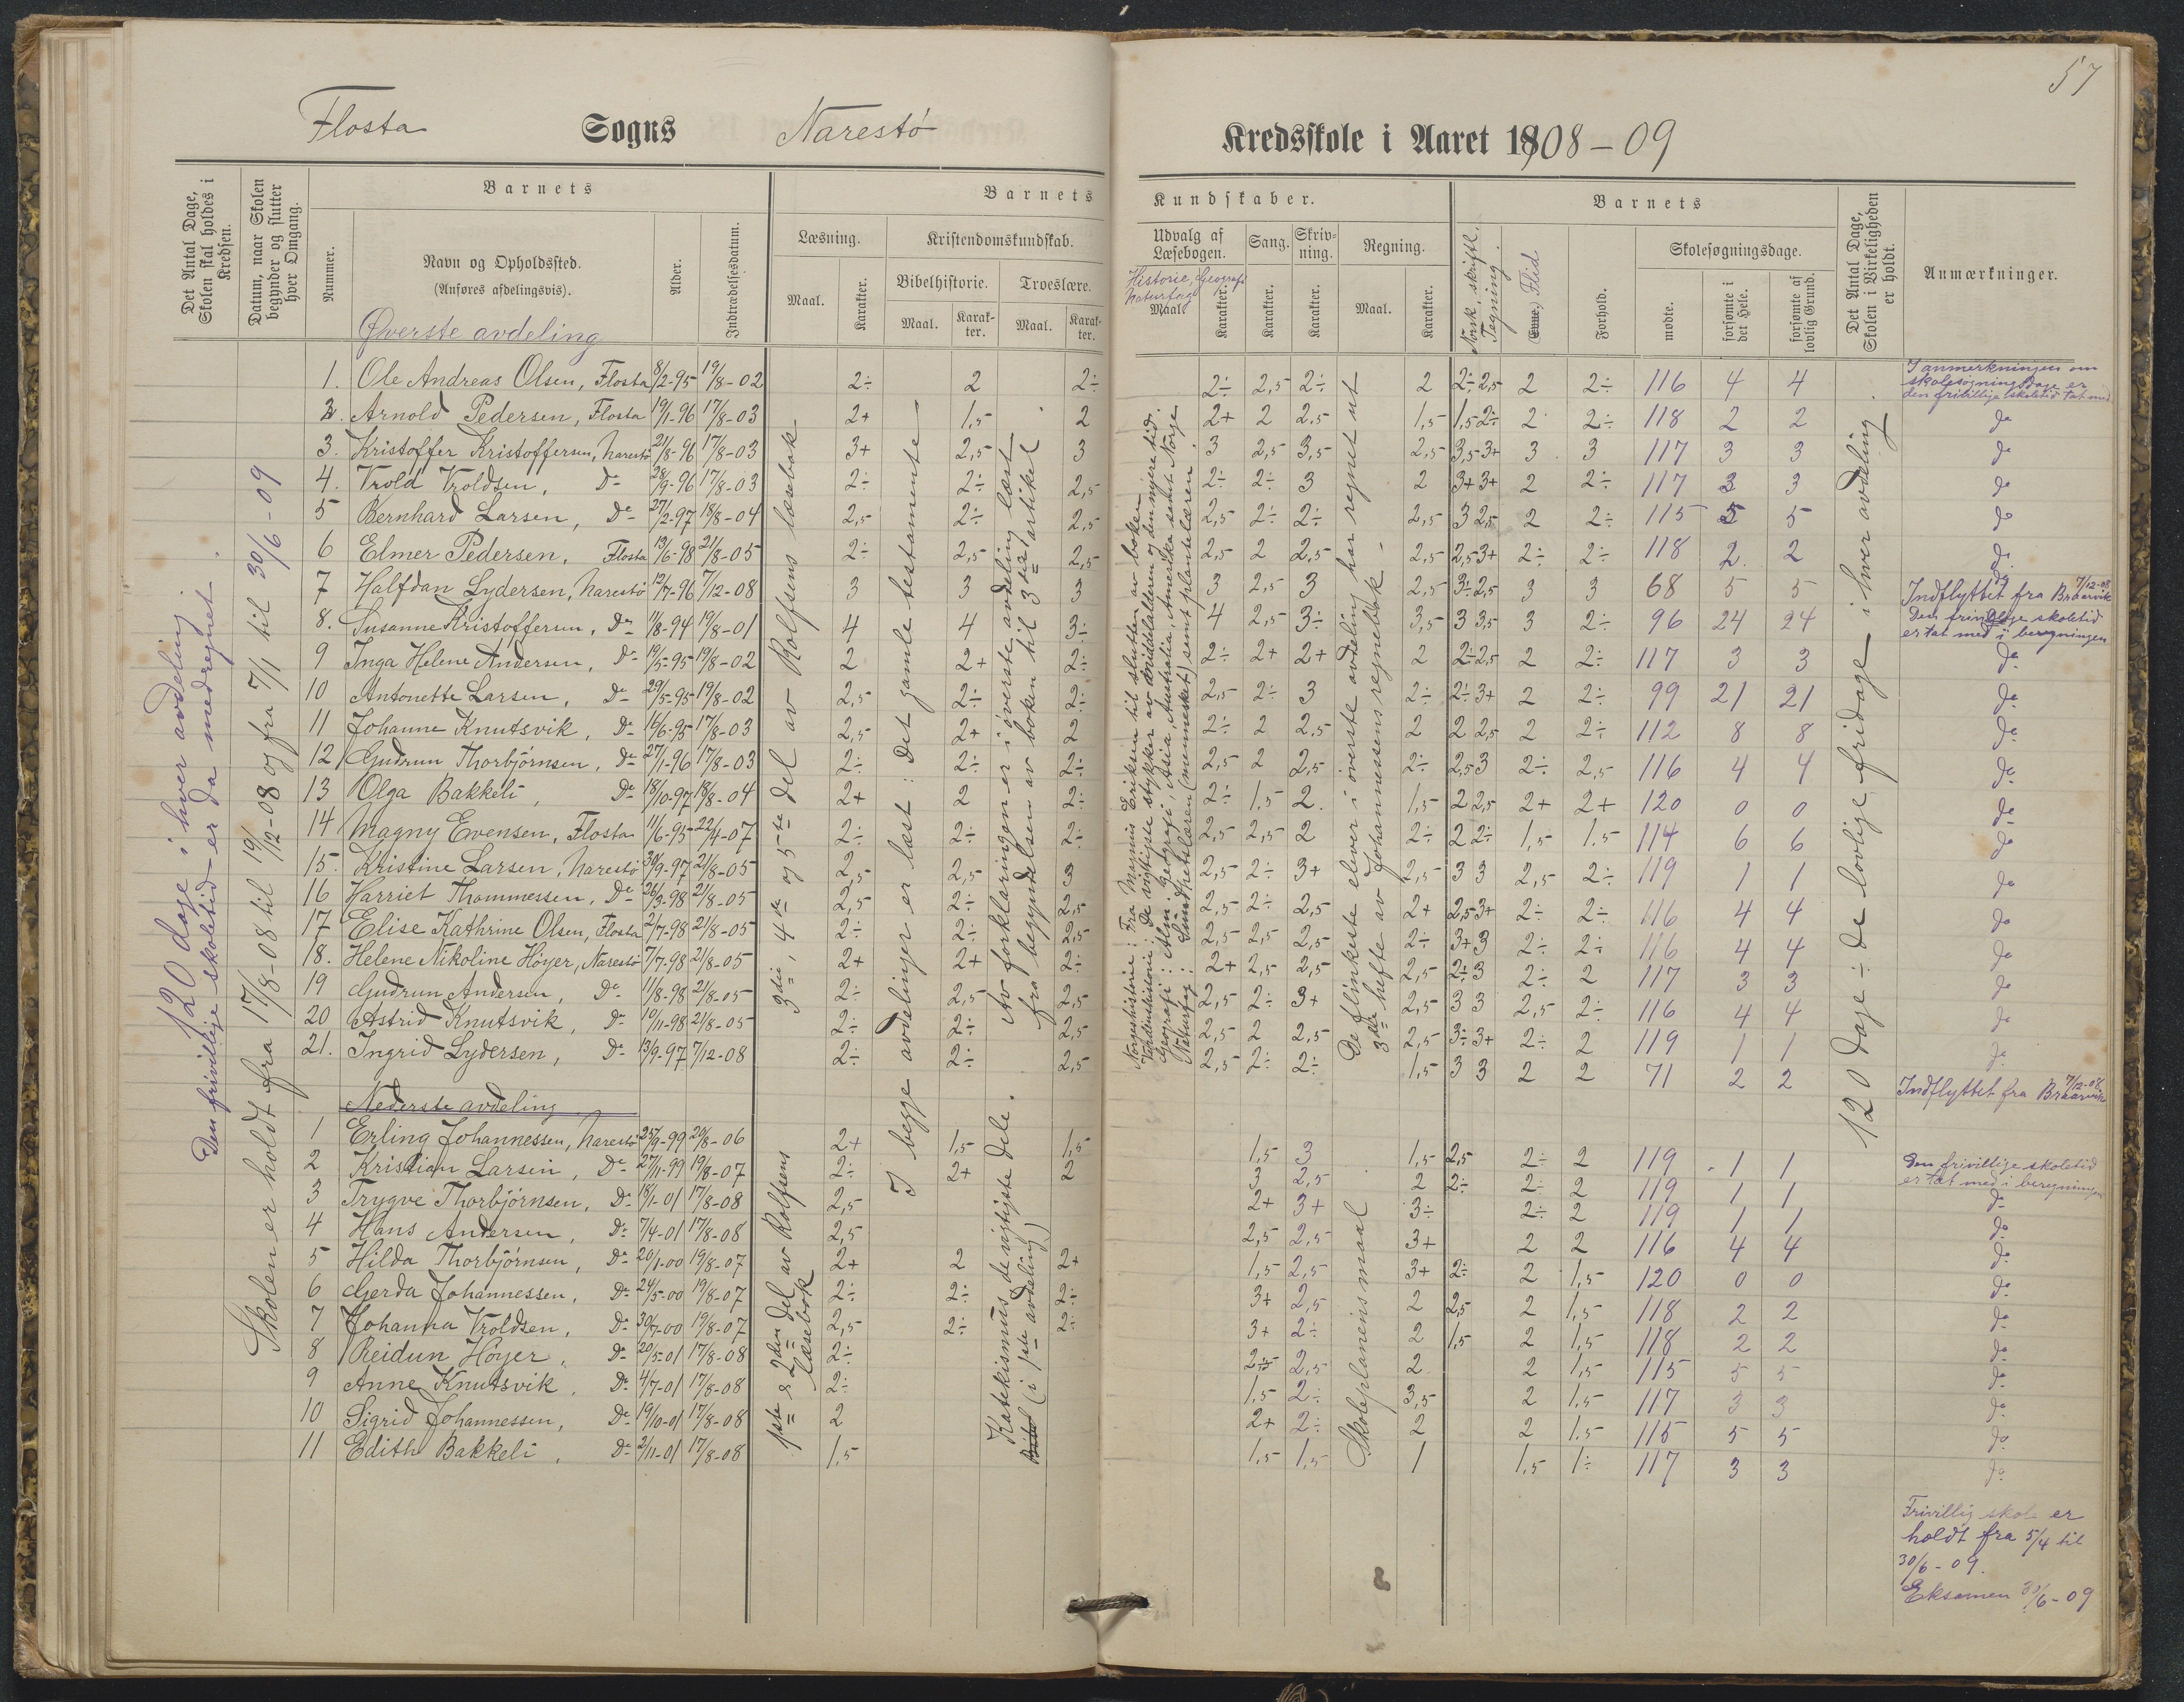 57
Flosta Sogns Narestö Kredsskole i Aaret 1908-09
Det Antal Dage, Skolen skal holdes i Kredsen.
Datum, naar Skolen begynder og slutter hver Omgang.
Barnets
Nummer.
Navn og Opholdssted.
(Anføres afdelingsvis).
Alder.
Indtrædelsesdatum.
Barnets Kundskaber.
Læsning.
Maal.
Karakter.
Kristendomskundskab.
Bibelhistorie.
Maal.
Karakter.
Troeslære.
Maal.
Karakter.
Udvalg af Læsebogen.
Historie, Geografi
Naturfag
Maal.
Karakter.
Sang.
Karakter.
Skrivning.
Karakter.
Regning.
Maal.
Karakter.
Barnets
Norsk, skriftl.
Tegning.
Evne, Flid
Forhold.
Skolesøgningsdage.
mødte.
forsømte i det Hele.
forsømte af lovlig Grund.
Det Antal Dage, Skolen i Virkeligheden er holdt.
Anmærkninger.
120 dage i hver avdeling.
Den frivillige skoletid er da medregnet.
Skolen er holdt fra 17/8-08 til 19/12-08 og fra 7/1 til 30/6-09
3die, 4de og 5te del av Rolfsens læsebok
I begge avdelinger er læst: Det gamle testamente
Av forklaringen er i øverste avdeling læst
fra begyndelsen av boken til 3die artikel
Norgeshistorie: Fra Magnus Eriksen til slutten av boken
Verdenshistorie: De vigtigste stykker av middelalderen og den nyere tid.
Geografi: Alm. geografi, Asia, Australia, Amerika samt Norge
Naturfag: Sundhetslæren (mennesket) samt plantelæren.
De flinkeste elever i øverste avdeling har regnet ut
3die hefte av Johannessens regnebok.
120 dage ÷ de lovlige fridage i hver avdeling
Øverste avdeling
1. Ole Andreas Olsen, Flosta 8/2-95 19/8-02 2÷ 2 2÷ 2÷ 2,5 2÷ 2 2÷ 2,5 2 2÷ 116 4 4 I anmerkningen om skolesøgningsdage er den frivillige skoletid tat med
2. Arnold Pedersen, Flosta 19/1-96 17/8-03 2+ 1,5 2 2+ 2 2,5 1,5 1,5 2÷ 2 2÷ 118 2 2 do
3. Kristoffer Kristoffersen, Narestö 21/8-96 17/8-03 3+ 2,5 3 3 2,5 3,5 2,5 3,5 3+ 3 3 117 3 3 do
4. Trold Troldsen, Do 28/9-96 17/8-03 2÷ 2÷ 2,5 2÷ 2÷ 3 2 3+ 3+ 2 2÷ 117 3 3 do
5 Bernhard Larsen, Do 27/2-97 18/8-04 2,5 2÷ 2,5 2,5 2÷ 2÷ 2,5 3 2,5 2 2÷ 115 5 5 do
6 Elmer Pedersen, Flosta 13/6-98 21/8-05 2÷ 2,5 2,5 2,5 2 2,5 2,5 2,5 3+ 2÷ 2÷ 118 2 2 do
7 Halfdan Lydersen, Narestö 12/7-96 7/12-08 3 3 3 3 2,5 3 2,5 3÷ 2,5 3 3 68 5 5 Indflyttet fra Braarvik 7/12-08
8. Susanne Kristoffersen, Do 11/8-94 19/8-01 4 4 3÷ 4 2,5 3÷ 3,5 3 3,5 3 2÷ 96 24 24 Den frivillige skoletid er tat med i beregningen
9 Inga Helene Andersen, Do 19/5-95 19/8-02 2 2+ 2÷ 2÷ 2+ 2+ 2 2÷ 2,5 2 2÷ 117 3 3 do
10 Antonette Larsen, Do 29/5-95 19/8-02 2,5 2÷ 2÷ 2,5 2÷ 3 2÷ 2÷ 3+ 2 2÷ 99 21 21 do
11 Johanne Knutsvik, Do 16/6-95 17/8-03 2,5 2+ 2 2÷ 2 2,5 2 2 2,5 2 2÷ 112 8 8 do
12 Gudrun Thorbjörnsen, Do 27/1-96 17/8-03 2÷ 2÷ 2÷ 2,5 2 2,5 2÷ 2,5 3 2÷ 2,5 116 4 4 do
13 Olga Bakkeli, Do 18/10-97 18/8-04 2+ 2 2÷ 2÷ 1,5 2. 1,5 2 2,5 2+ 2+ 120 0 0 do
14 Magny Evensen, Flosta 11/6-95 22/4-07 2÷ 2÷ 2÷ 2,5 2,5 2 2÷ 2 2÷ 1,5 1.5 114 6 6 do
15. Kristine Larsen, Narestö 30/9-97 21/8-05 2,5 2,5 3 2,5 2÷ 3+ 2,5 3 3 2,5 2÷ 119 1 1 do
16 Harriet Thommessen, Do 26/3-98 21/8-05 2,5 2÷ 2,5 2,5 2÷ 2,5 2+ 2,5 3+ 2÷ 2÷ 116 4 4 do
17 Elise Kathrine Olsen, Flosta 2/7-98 21/8-05 2÷ 2÷ 2,5 2,5 2,5 2,5 2÷ 3+ 3 2÷ 2÷ 116 4 4 do
18. Helene Nikoline Höyer, Narestö 7/7-98 21/8-05 2+ 2+ 2÷ 2+ 2,5 2,5 2,5 2÷ 3 2÷ 2 117 3 3 do
19 Gudrun Andersen, Do 11/8-98 21/8-05 2÷ 2,5 2,5 2,5 2÷ 3+ 2,5 3 3 2,5 2÷ 116 4 4 do
20 Astrid Knutsvik, Do 10/11-98 21/8-05 2÷ 2÷ 2,5 2,5 2 2,5 2,5 3÷ 3+ 2÷ 2 119 1 1 do
21. Ingrid Lydersen, Do 13/9-97 7/12-08 2÷ 2÷ 2,5 2,5 2÷ 2÷ 1,5 3 3 2 2 71 2 2 Indflyttet fra Braarvik 7/12-08
Nederste avdeling
1ste & 2den del av Rolfsens læsebok
Katekismus de vigtigste dele.
(i 1ste avdeling)
Skoleplanens maal
1 Erling Johannessen, Narestö 25/9-99 20/8-06 2+ 1,5 1,5 1,5 3 1,5 2,5 2÷ 2 119 1 1 Den frivillige skoletid er tat med i beregningen
2 Kristian Larsen, Do 27/11-99 19/8-07 2÷ 2+ 2 3 2,5 2 2÷ 2÷ 2 119 1 1 do
3 Trygve Thorbjörnsen, Do 18/1-01 17/8-08 2,5 2+ 3+ 3÷ 2÷ 2 119 1 1 do
4 Hans Andersen, Do 7/4-01 17/8-08 2,5 2,5 2,5 3+ 2 2 116 4 4 do
5 Hilda Thorbjörnsen, Do 20/1-00 19/8-07 2+ 2 2+ 1,5 2,5 3+ 2÷ 2 1,5 120 0 0 do
6 Gerda Johannessen, Do 24/5-00 19/8-07 2÷ 2÷ 2÷ 3+ 2,5 2 2,5 2 1,5 118 2 2 do
7 Johanna Troldsen, Do 30/7-00 19/8-07 2,5 2÷ 2÷ 3+ 2÷ 2 1,5 2 1,5 118 2 2 do
8 Reidun Höyer, Do 20/5-01 17/8-08 2÷ 2÷ 2,5 2 2 1,5 115 5 5 do
9 Anne Knutsvik, Do 4/7-01 17/8-08 2÷ 1,5 2÷ 3,5 2 1,5 117 3 3 do
10 Sigrid Johannessen, Do 19/10-01 17/8-08 2 2+ 2÷ 2 2 1.5 115 5 5 do
11 Edith Bakkeli, Do 2/11-01 17/8-08 1,5 1,5 1,5 1 1,5 1÷ 117 3 3 do
Frivillig skole er
holdt fra 5/4 til
30/6-09.
Eksamen 30/6-09